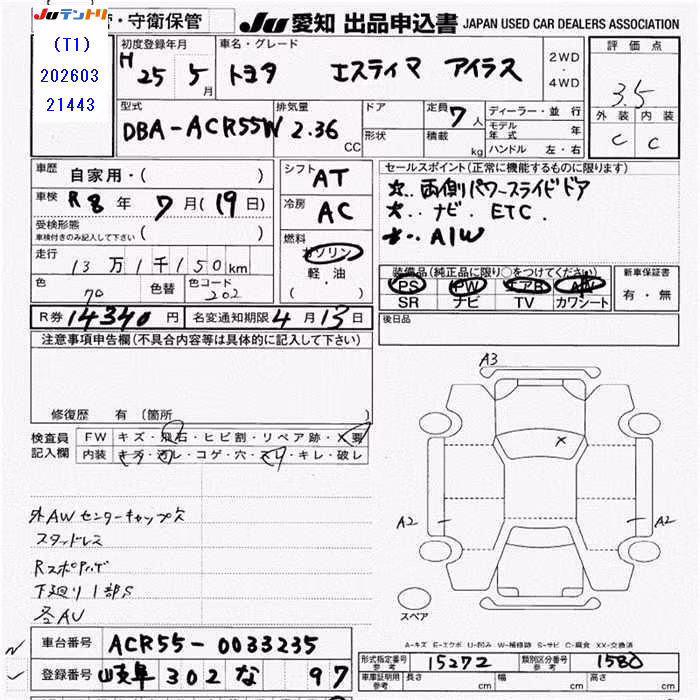 JUテントリ
・守衛保管
JU 愛知 出品申込書 JAPAN USED CAR DEALERS ASSOCIATION
(T1)
202603
21443
初度登録年月
H 25 5月
車名・グレード
トヨタ エスティマ アイラス
2WD
・
4WD
評価点
3.5
外装 内装
C C
型式
DBA-ACR55W
排気量
2.36 CC
ドア
形状
定員 7人
積載 kg
ディーラー・並行
モデル年式 年
ハンドル 左・右
車歴 自家用・( )
車検 R8年 7月(19日)
受検形態
車検付きのみ記入して下さい ( )
走行 13万1千150km
色 色替 色コード
202
シフト AT
冷房 AC
燃料
ガソリン
軽・油
・( )
セールスポイント(正常に機能するものに限ります)
☆.. 両側パワースライドドア
☆.. ナビ. ETC.
☆.. A/W
装備品(純正品に限り○をつけてください)
PS PW エアB AW
SR ナビ TV カワシート
新車保証書
有・無
R券 14340円 名変通知期限 4月13日
後日品
注意事項申告欄(不具合内容等は具体的に記入して下さい)
修復歴 有(箇所
検査員
記入欄
FW キズ・飛石・ヒビ割・リペア跡・X要
内装 キズ・汚レ・コゲ・穴・スリ・キレ・破レ
外AWセンターキャップ欠
スタッドレス
下廻り1部S
冬AW
A3
X
A2
A2
スペア
A-キズ E-エクボ U-凹み W-補修跡 S-サビ C-腐食 XX-交換済
車台番号 ACR55-0033235
登録番号 岐阜 302 な 97
形式指定番号
参考
15272
類別区分番号
参考
1580
車庫証明用
参考
長さ cm 幅 cm 高さ cm